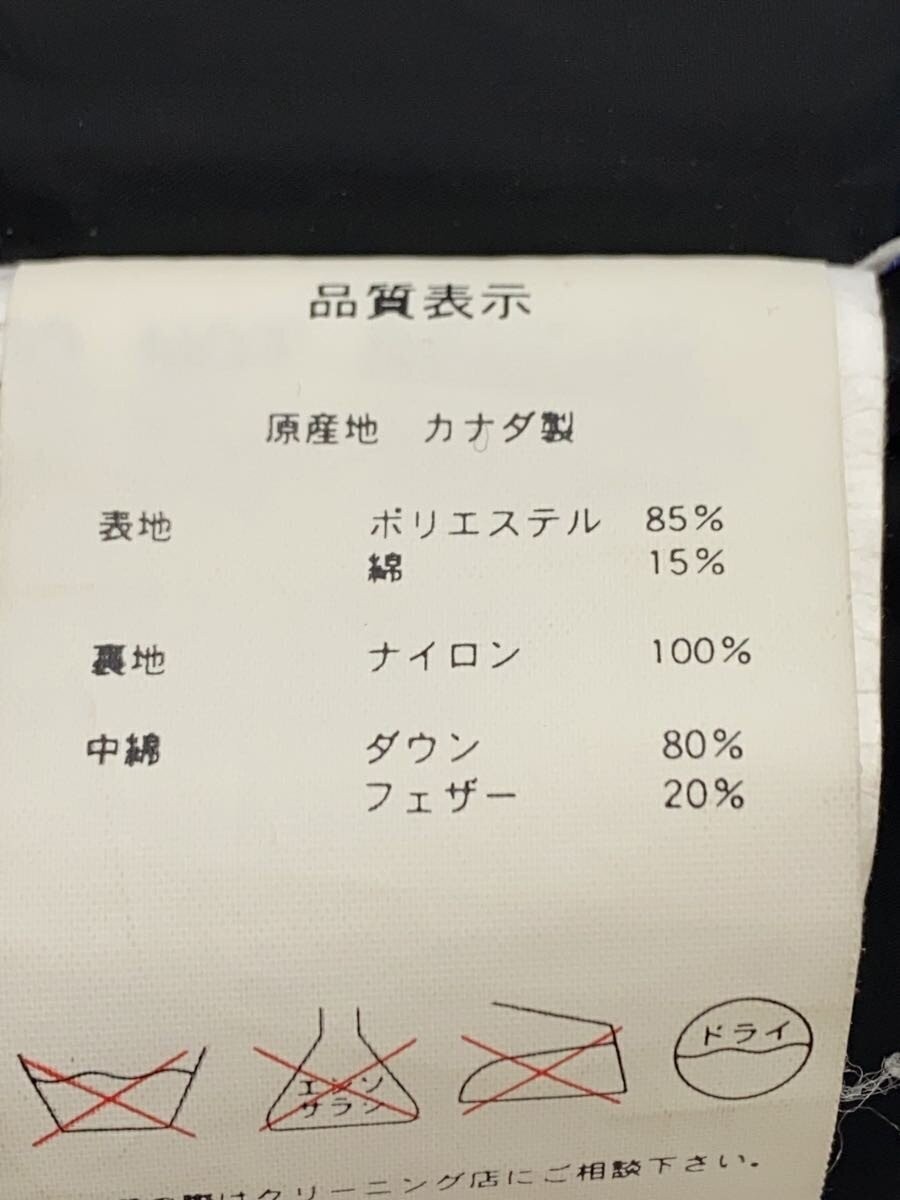 品質表示
原産地 カナダ製
表地 ポリエステル 85%
綿 15%
裏地 ナイロン 100%
中綿 ダウン 80%
フェザー 20%
エンソ
サラシ
ドライ
の際はクリーニング店にご相談下さい。